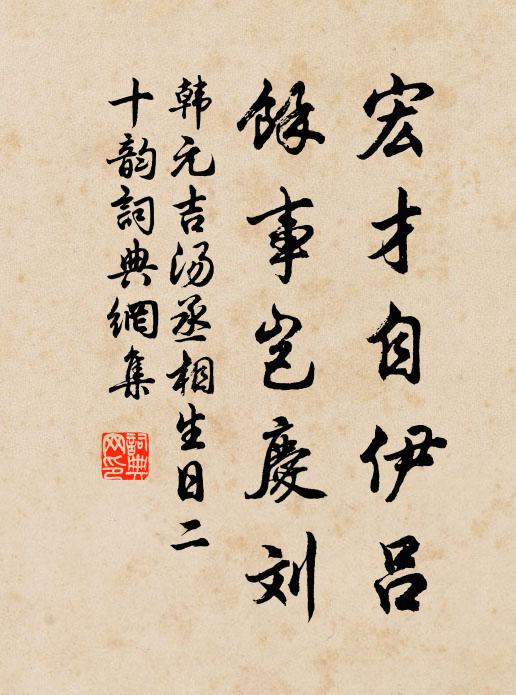 宏才自伊吕
馀事岂庆刘
韩元吉汤丞相生日二
十韵词典网集
詞典网印